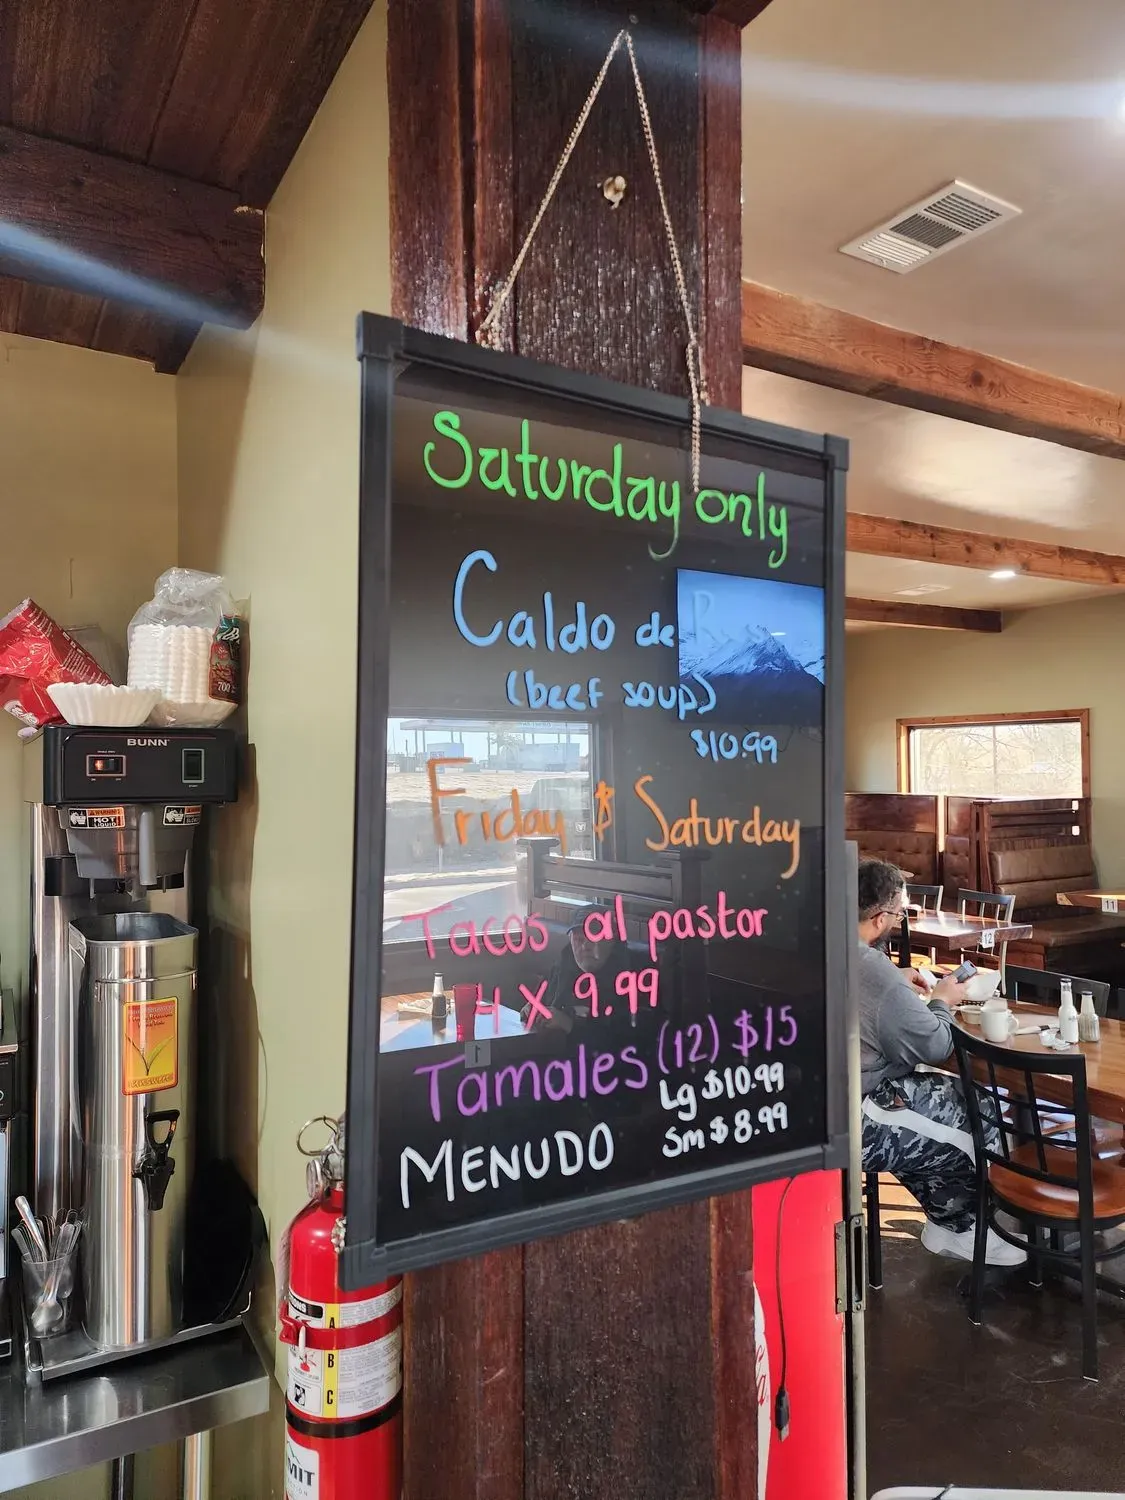 Saturday only
Caldo de Res
(beef soup)
$10.99
Friday & Saturday
Tacos al pastor
4 X 9.99
Tamales (12) $15
MENUDO
Lg $10.99
Sm $8.99
BUNN
WARNING
HOT
LIQUID
A
B
C
12
11